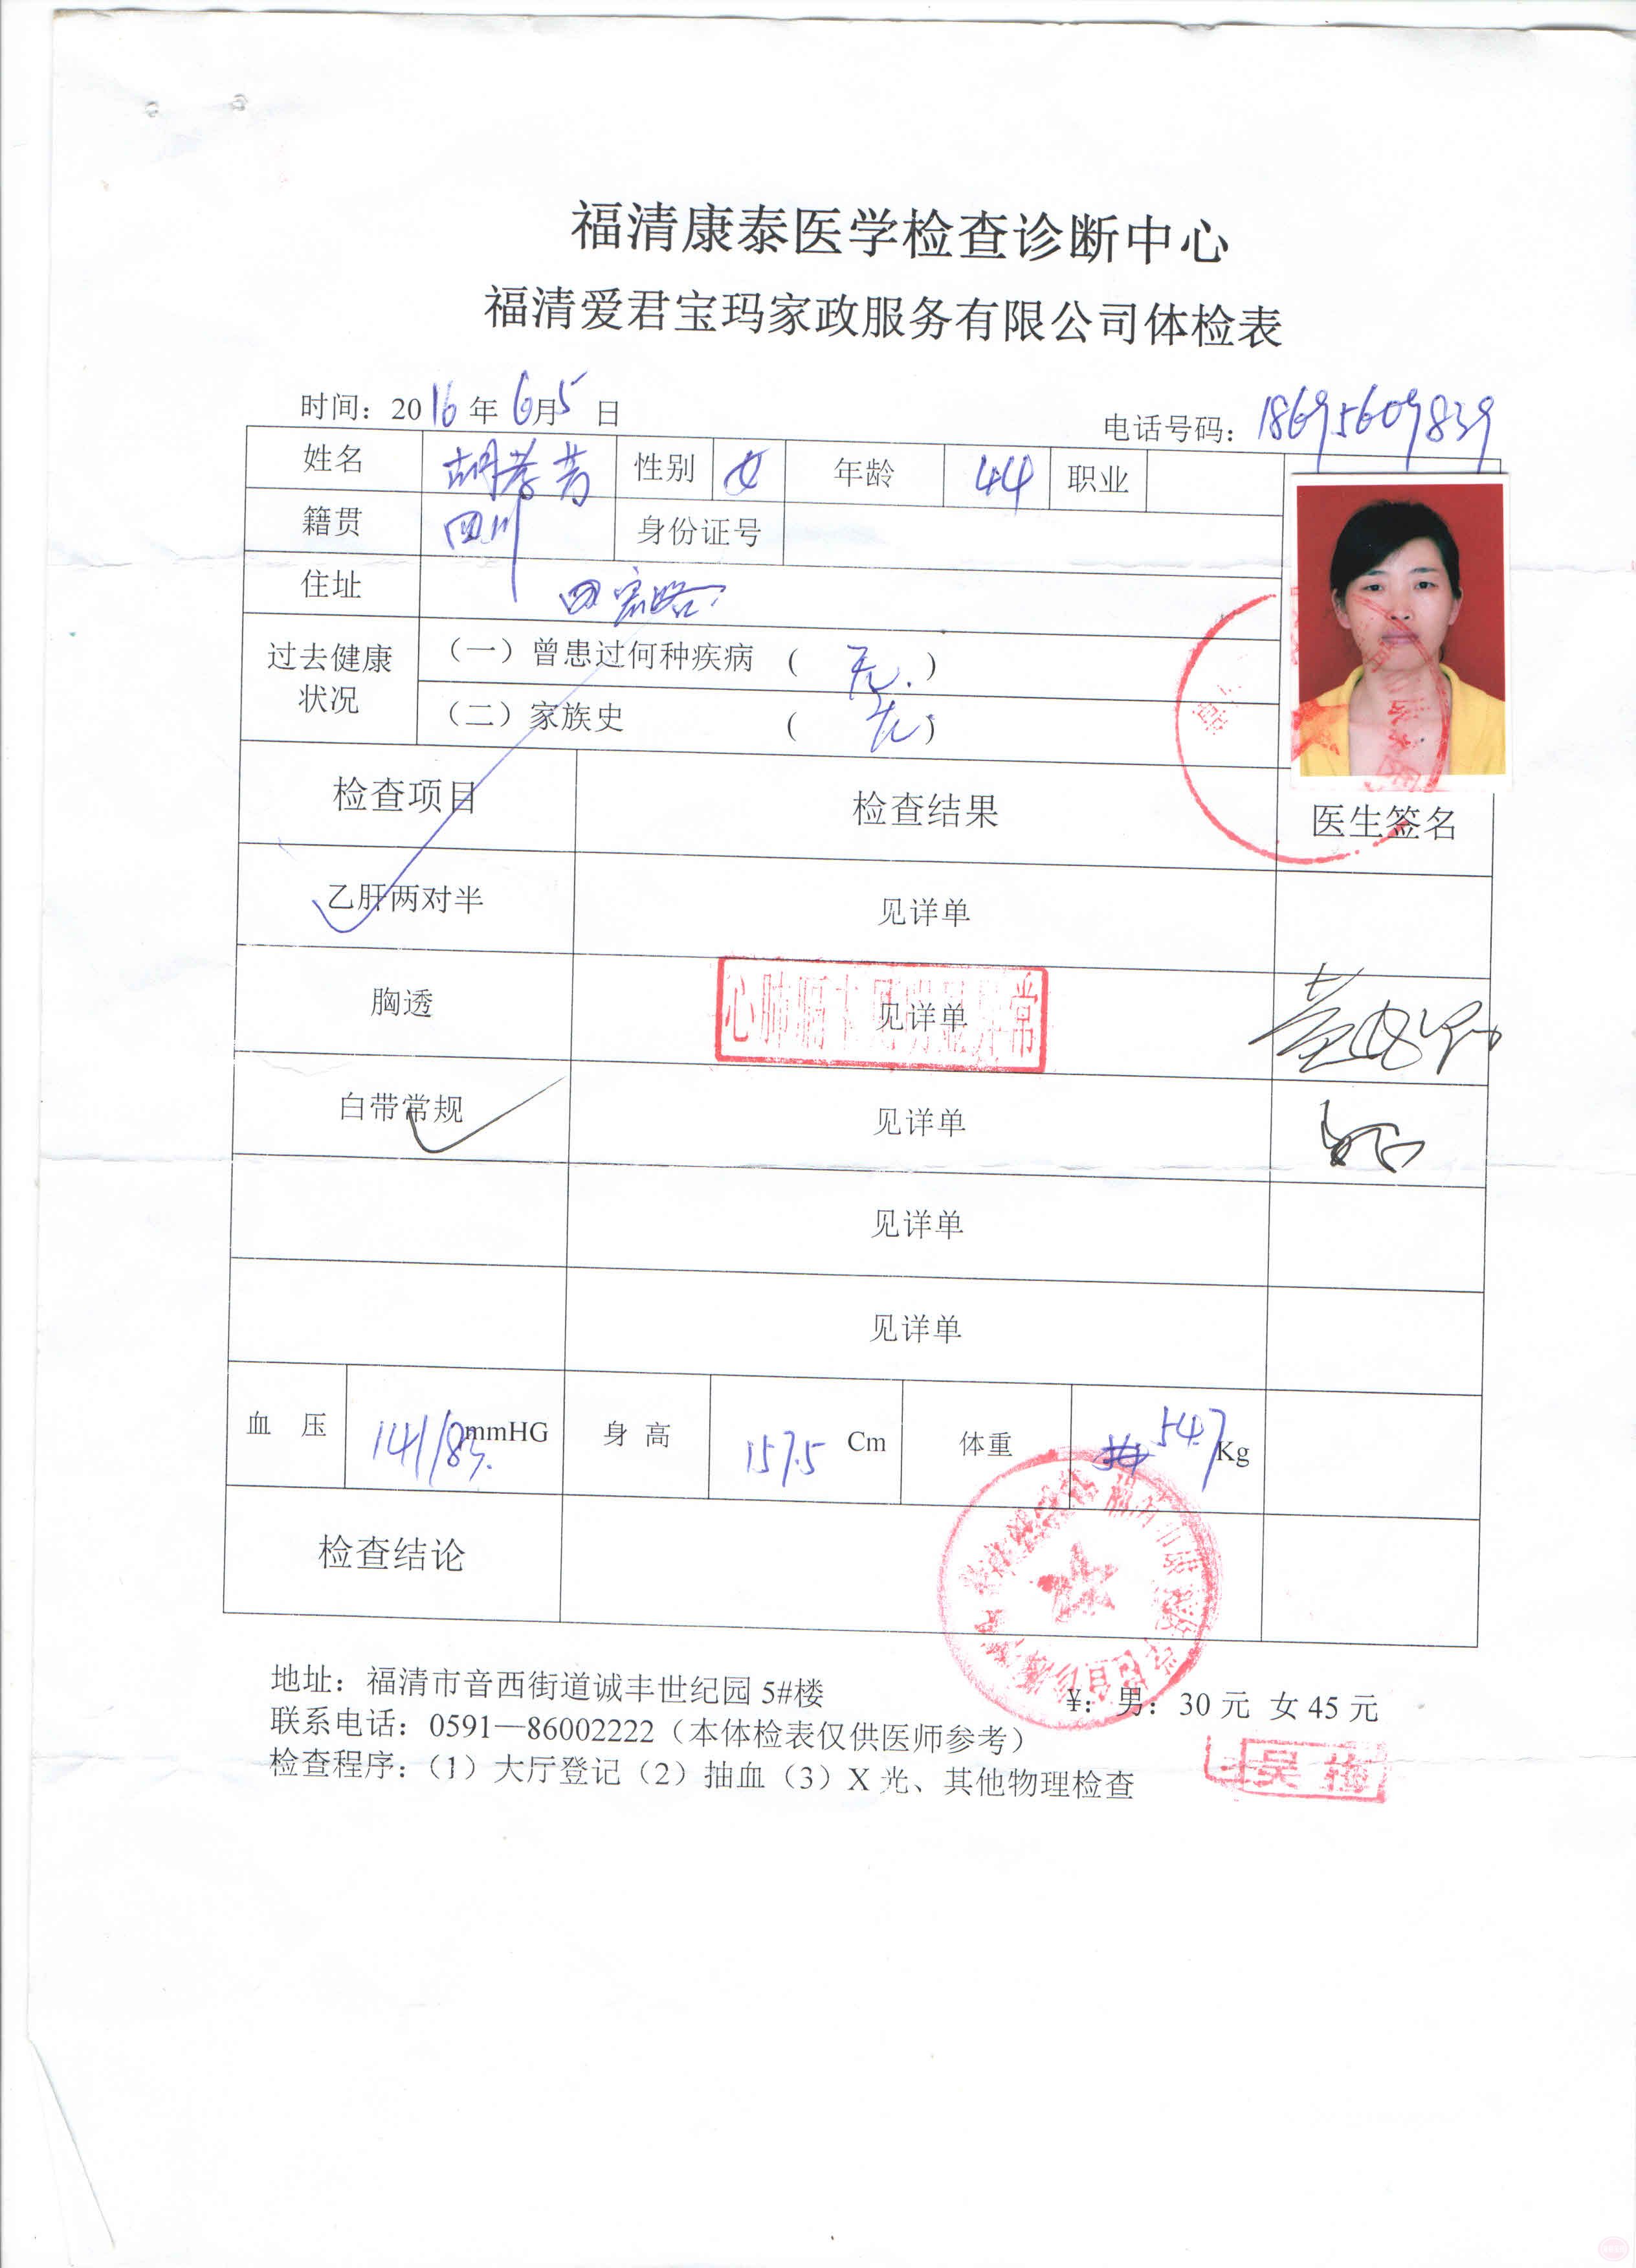 福清康泰医学检查诊断中心
福清爱君宝玛家政服务有限公司体检表
时间：2016年6月5日 电话号码：18695609839
姓名 胡孝芳 性别 女 年龄 44 职业
籍贯 四川 身份证号
住址 宏路
过去健康状况 （一）曾患过何种疾病 （ 无. ）
（二）家族史 （ 无 ）
检查项目 检查结果 医生签名
乙肝两对半 见详单
胸透 见详单 心肺膈未见明显异常
白带常规 见详单
见详单
见详单
血 压 141/85. mmHG 身 高 157.5 Cm 体重 54.7 Kg
检查结论
地址：福清市音西街道诚丰世纪园 5#楼
¥：男：30 元 女 45 元
联系电话：0591—86002222（本体检表仅供医师参考）
检查程序：（1）大厅登记（2）抽血（3）X 光、其他物理检查